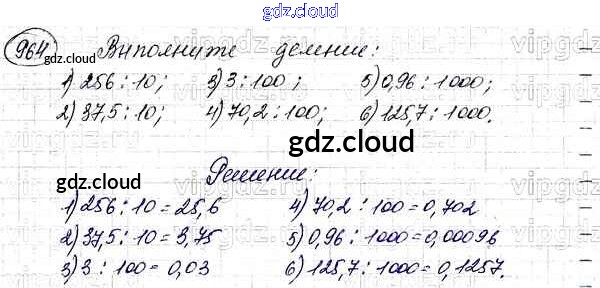 gdz.cloud
964 Выполните деление:
1) 256 : 10; 3) 3 : 100; 5) 0,96 : 1000;
2) 37,5 : 10; 4) 70,2 : 100; 6) 125,7 : 1000.
gdz.cloud
gdz.cloud
gdz.cloud
Решение:
gdz.cloud
1) 256 : 10 = 25,6 4) 70,2 : 100 = 0,702
2) 37,5 : 10 = 3,75 5) 0,96 : 1000 = 0,00096
3) 3 : 100 = 0,03 6) 125,7 : 1000 = 0,1257.
gdz.cloud
gdz.cloud